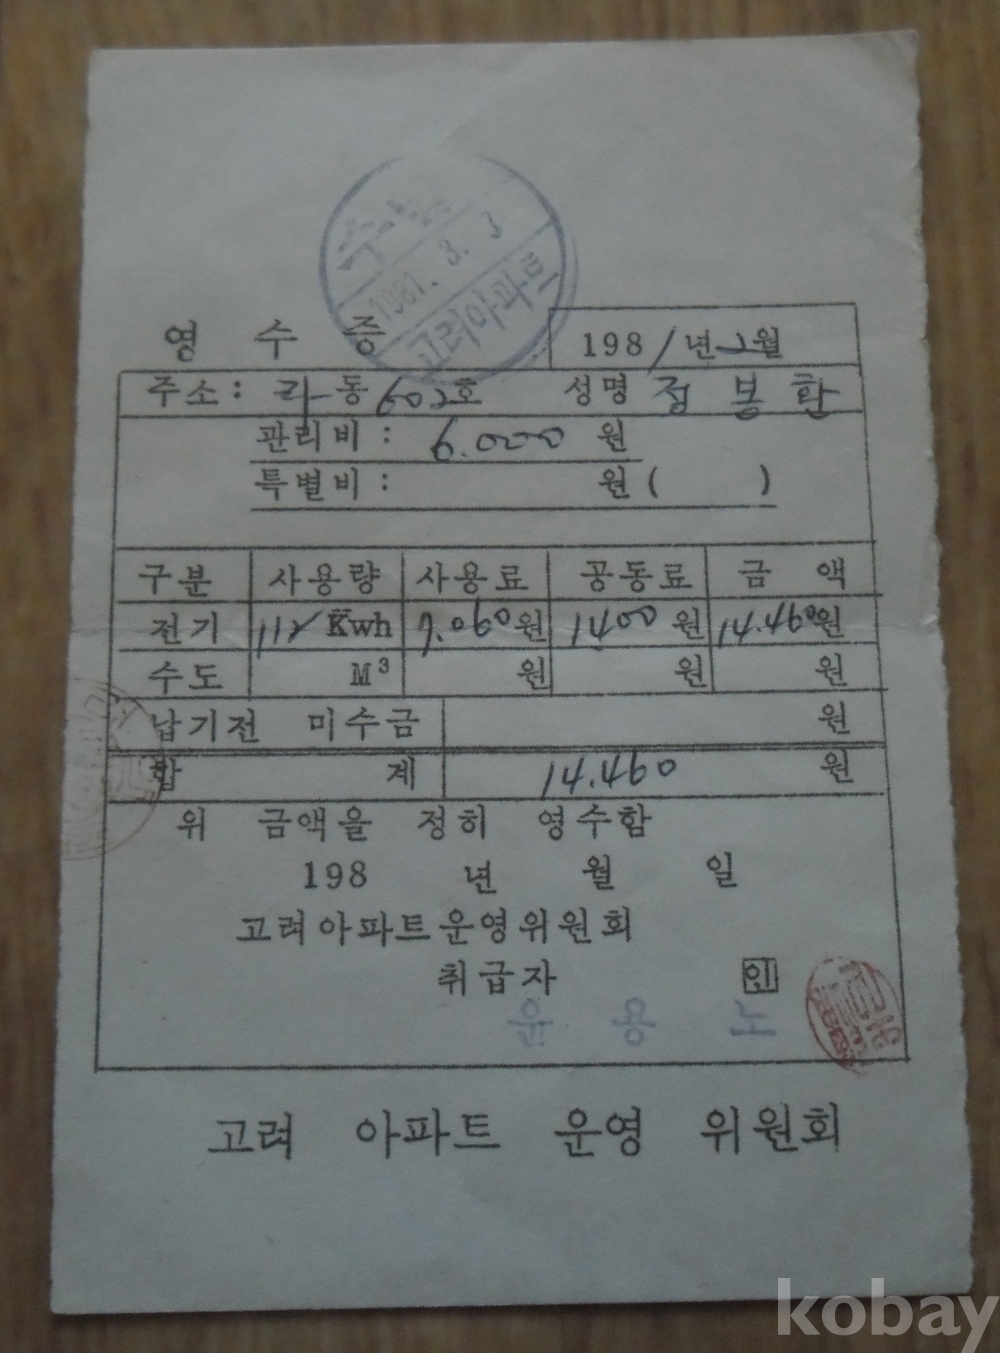 수납
1981. 3. 3
고려아파트
영 수 증
1981년 2월
주소: 라동 602호 성명 정봉학
관리비: 6.000 원
특별비: 원 ( )
구분 사용량 사용료 공동료 금 액
전기 112 Kwh 7.060원 1400원 14.460원
수도 M³ 원 원 원
납기전 미수금 원
합 계 14.460 원
위 금액을 정히 영수함
198 년 월 일
고려아파트운영위원회
취급자 인
윤 용 노
고려 아파트 운영 위원회
kobay